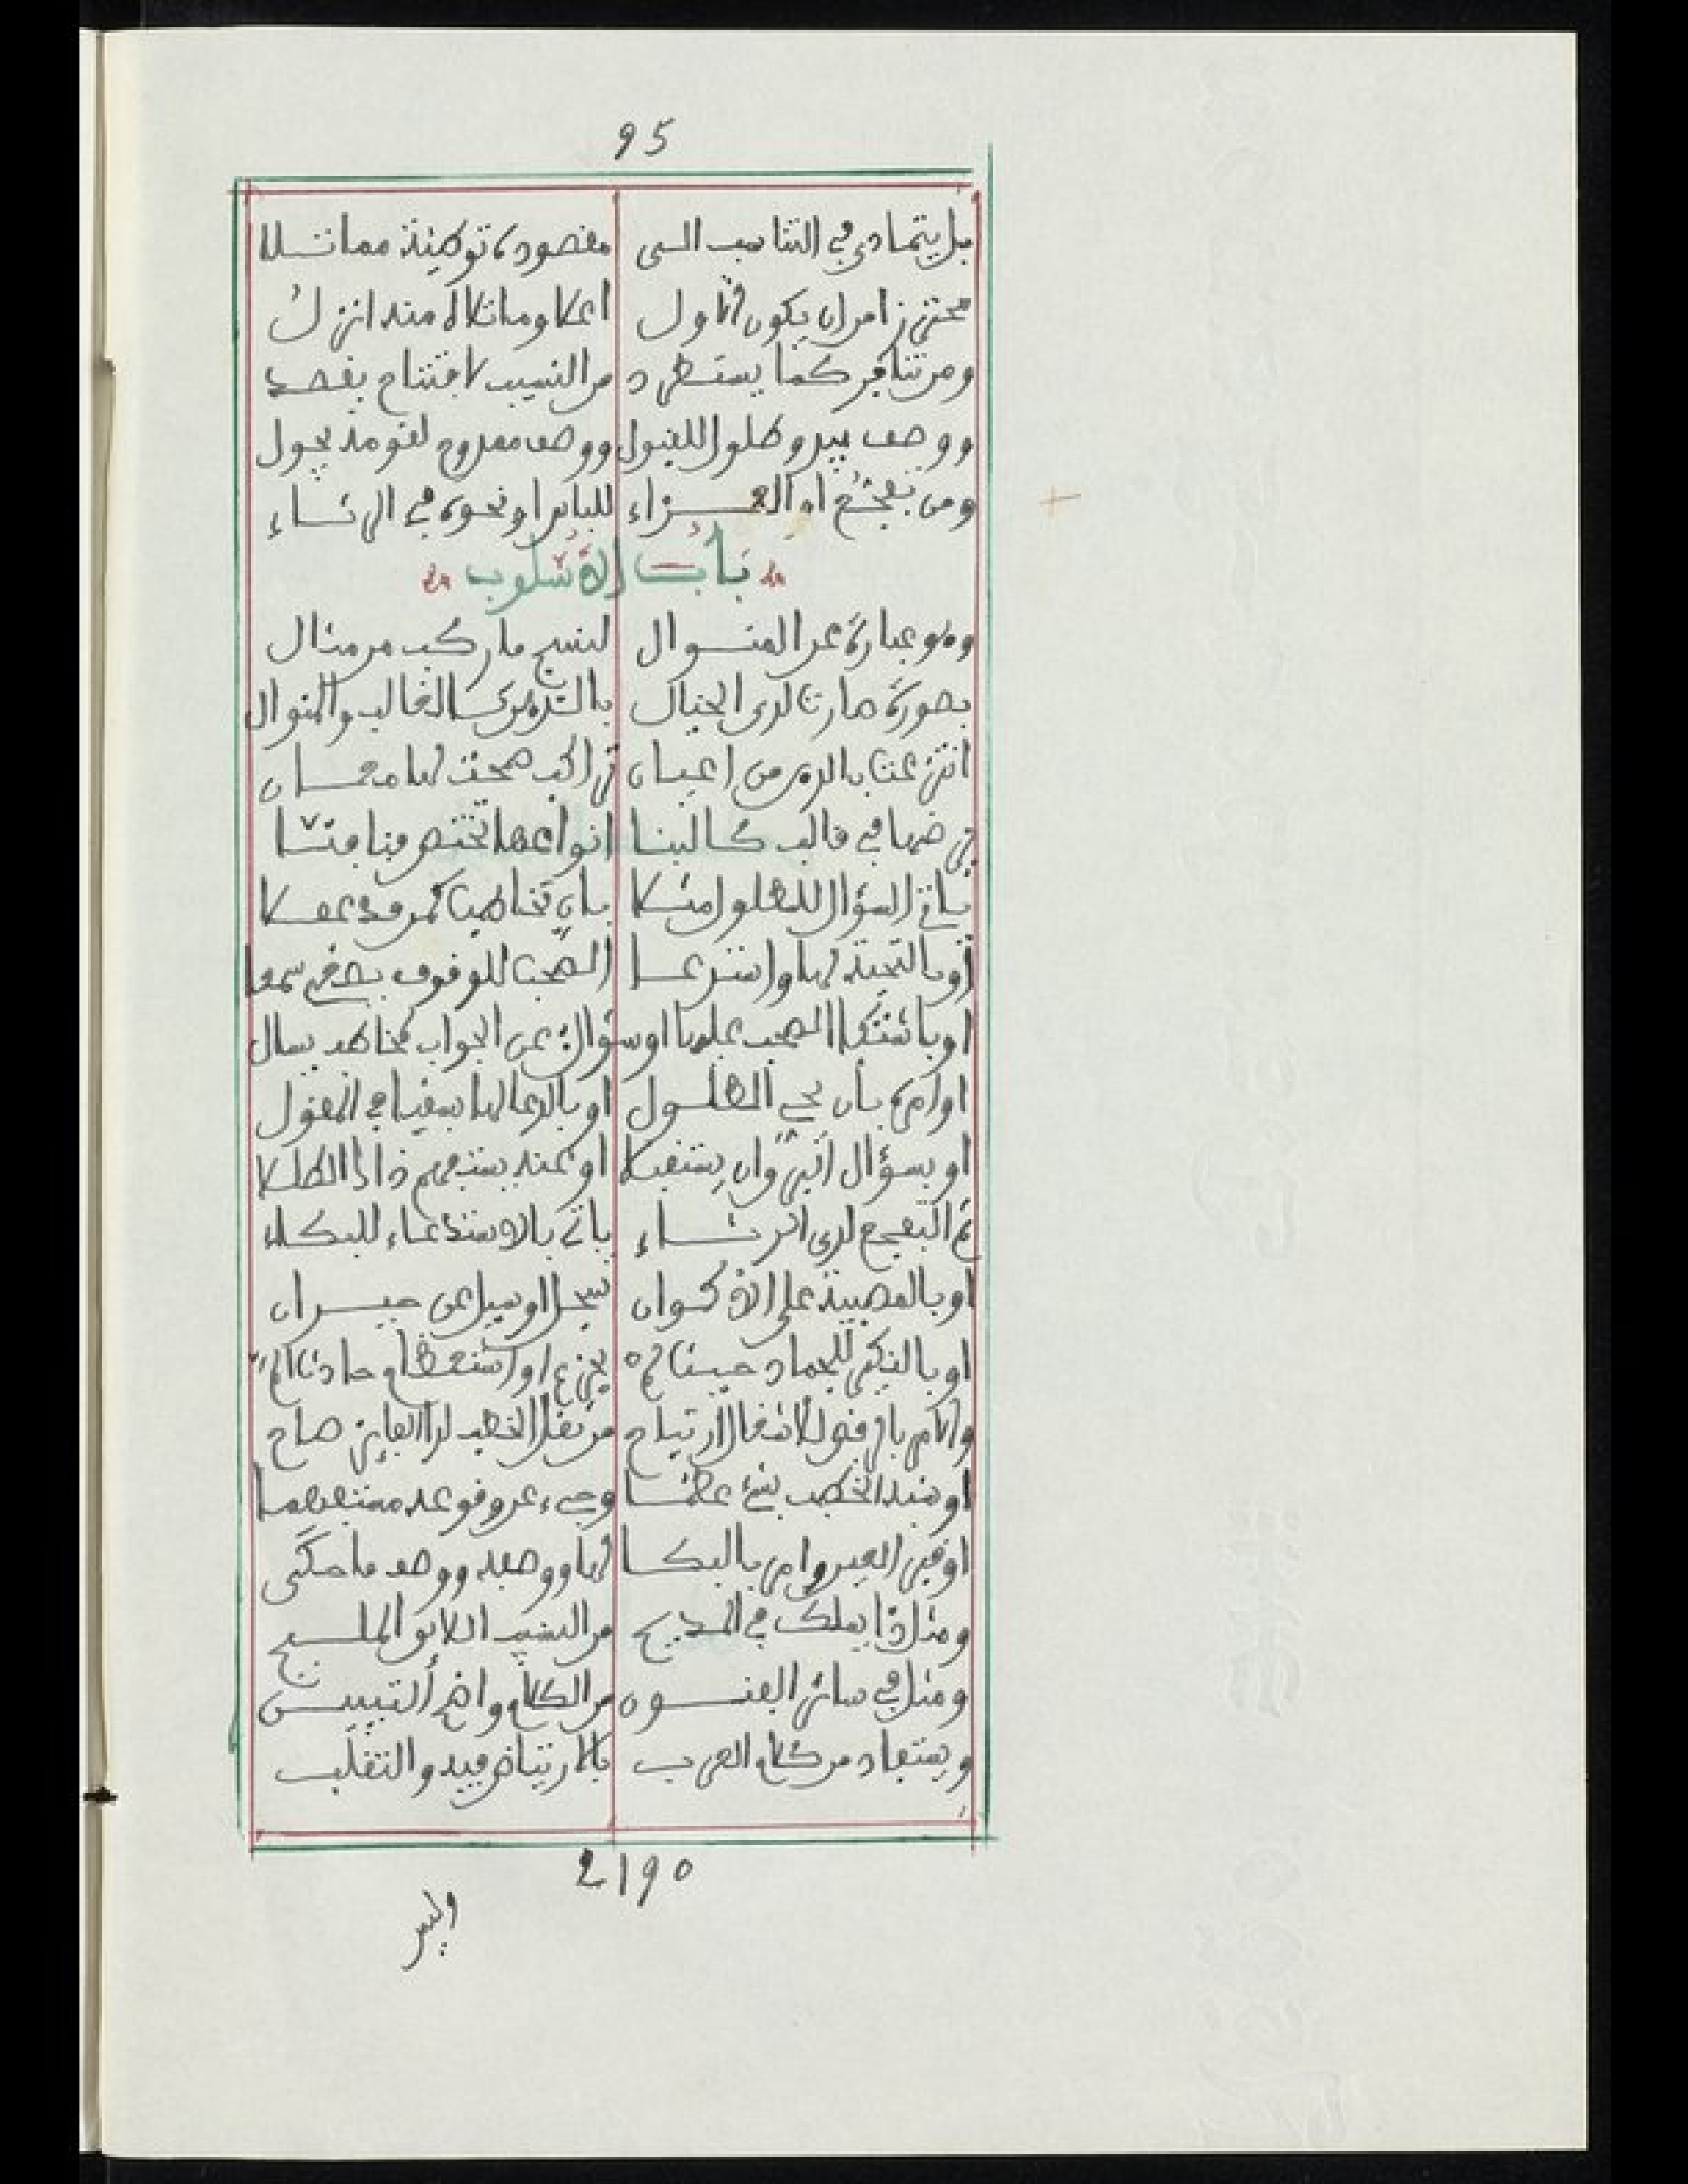 95
بل يتمادى في التناسب الى مقصوده توطئة مماثلا
محترزا من ان يكون الاول اعلا وما تلاه منه انزل
ومن تنافر كما يستطرد من النسيب لافتتاح يقصد
ووصف بيد وطلول للخيول ووصف ممدوح لقومه يحول
ومن تفجع او العزاء للبابين او نحوه في الرثاء
باب الأسلوب
وهو عبارة عن المنوال لنسج ما ركب من مثال
بصورة صارت لدى الخيال بالذهن كالقالب والمنوال
انتزعت بالذهن من اعيان تراكب صحت لها معان
فرضها في قالب كالبنا انواعها تختص فنا فنا
ياتي السؤال للطلول مثلا بان تخاطب كمن قد عقلا
أو بالتحية لها واستدعا الصحب للوقوف بعض سمعا
او باشتكا الصحب عليها او سؤال عن الجواب مخاطب يسال
او امره بأن يحي الطلول او بالدعا لها بسقيا في المقول
او بسؤال البرق ان يستقبلا او عنه يستفهم ذا ذا الطلا
ثم التفجع لدى الرثاء ياتي بالاستدعاء للبكاء
او بالمصيبة على الأكوان تسجل او يسل عن جيران
او بالنكير للجماد حيث لم يجزع او استعظام حادث الم
والامر بالرفق لاثقال ارتياح من ثقل الخطب لدا الفايز صاح
او فقد الخطب بشيء عظما وجيء عن وقوعه مستفهما
او غير العين وامر بالبكا لها ووصفه ووصف ما حكى
ومثل ذا يملك في المديح من النسيب اللائق المليح
ومثل في سائر الفنون من الكلام واضح التبيين
ويستفاد من كلام العرب بالارتياض فيه والتقلب
2190
وليس